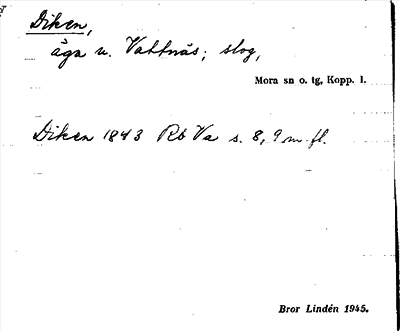 Diken,
äga u. Vattnäs; slog,
Mora sn o. tg, Kopp. l.
Diken 1843 Rb Va s. 8, 9 m. fl.
Bror Lindén 1945.